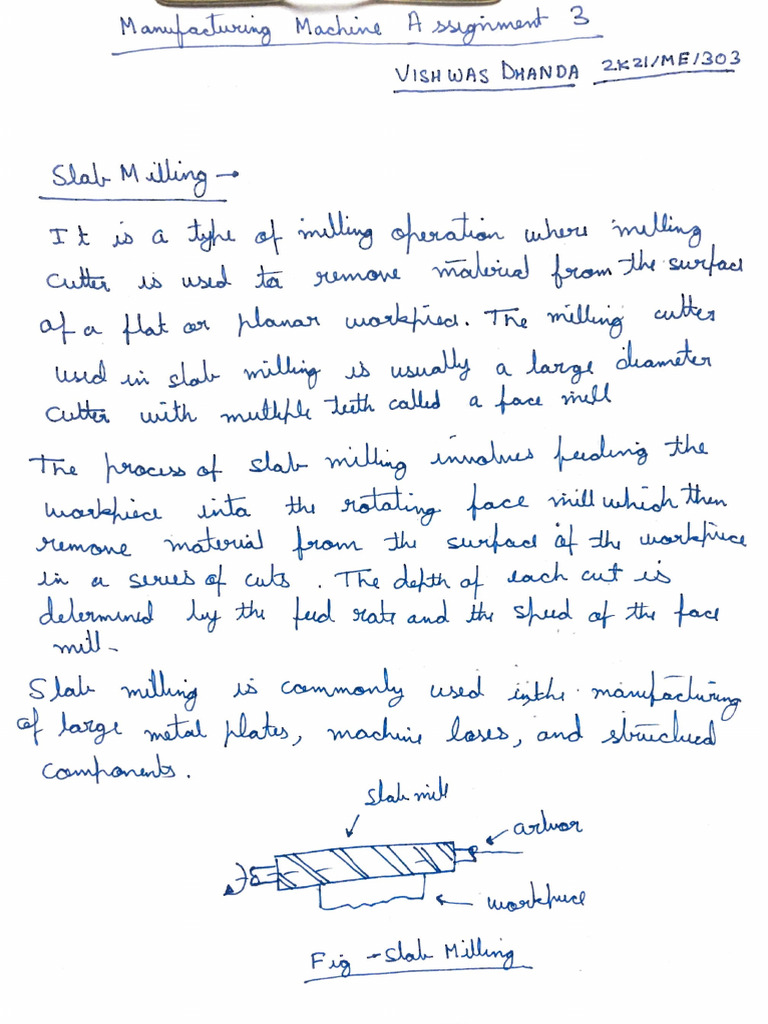 Manufacturing Machine Assignment 3
VISHWAS DHANDA 2K21/ME/303
Slab Milling →
It is a type of milling operation where milling
cutter is used to remove material from the surface
of a flat or planar workpiece. The milling cutter
used in slab milling is usually a large diameter
cutter with multiple teeth called a face mill
The process of slab milling involves feeding the
workpiece into the rotating face mill which then
remove material from the surface of the workpiece
in a series of cuts. The depth of each cut is
determined by the feed rate and the speed of the face
mill.
Slab milling is commonly used in the manufacturing
of large metal plates, machine bases, and structured
components.
slab mill
arbor
workpiece
Fig → Slab Milling